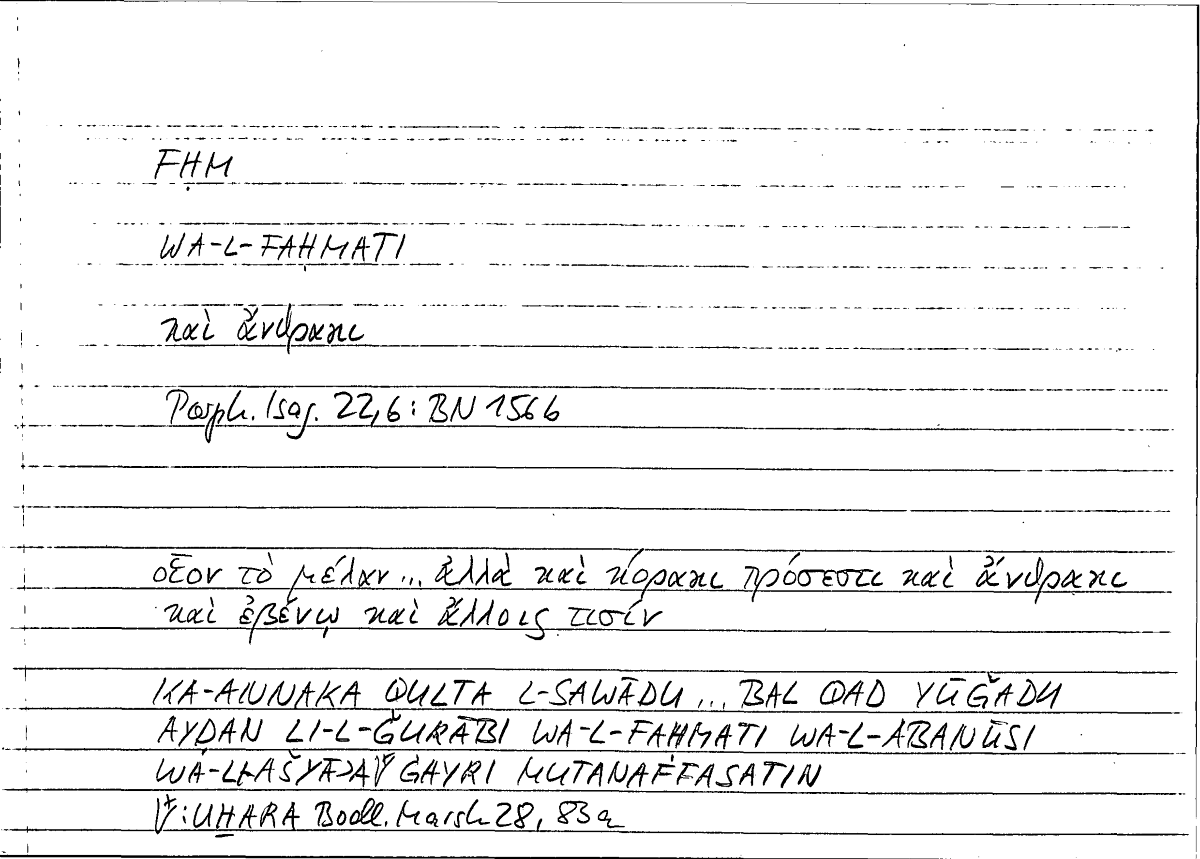 FḤM
WA-L-FAḤMATI
καὶ ἄνθρακι
Porph. Isag. 22,6: BN 156b
οἷον τὸ μέλαν... ἀλλὰ καὶ κόρακι πρόσεστι καὶ ἄνθρακι
καὶ ἐβένῳ καὶ ἄλλοις τισίν
KA-ANNAKA QULTA L-SAWĀDU... BAL QAD YŪǦADU
AYḌAN LI-L-ĠURĀBI WA-L-FAḤMATI WA-L-ĀBANŪSI
ĠAYRI MUTANAFFASATIN
UḪARA Bodl. Marsh 28, 83a